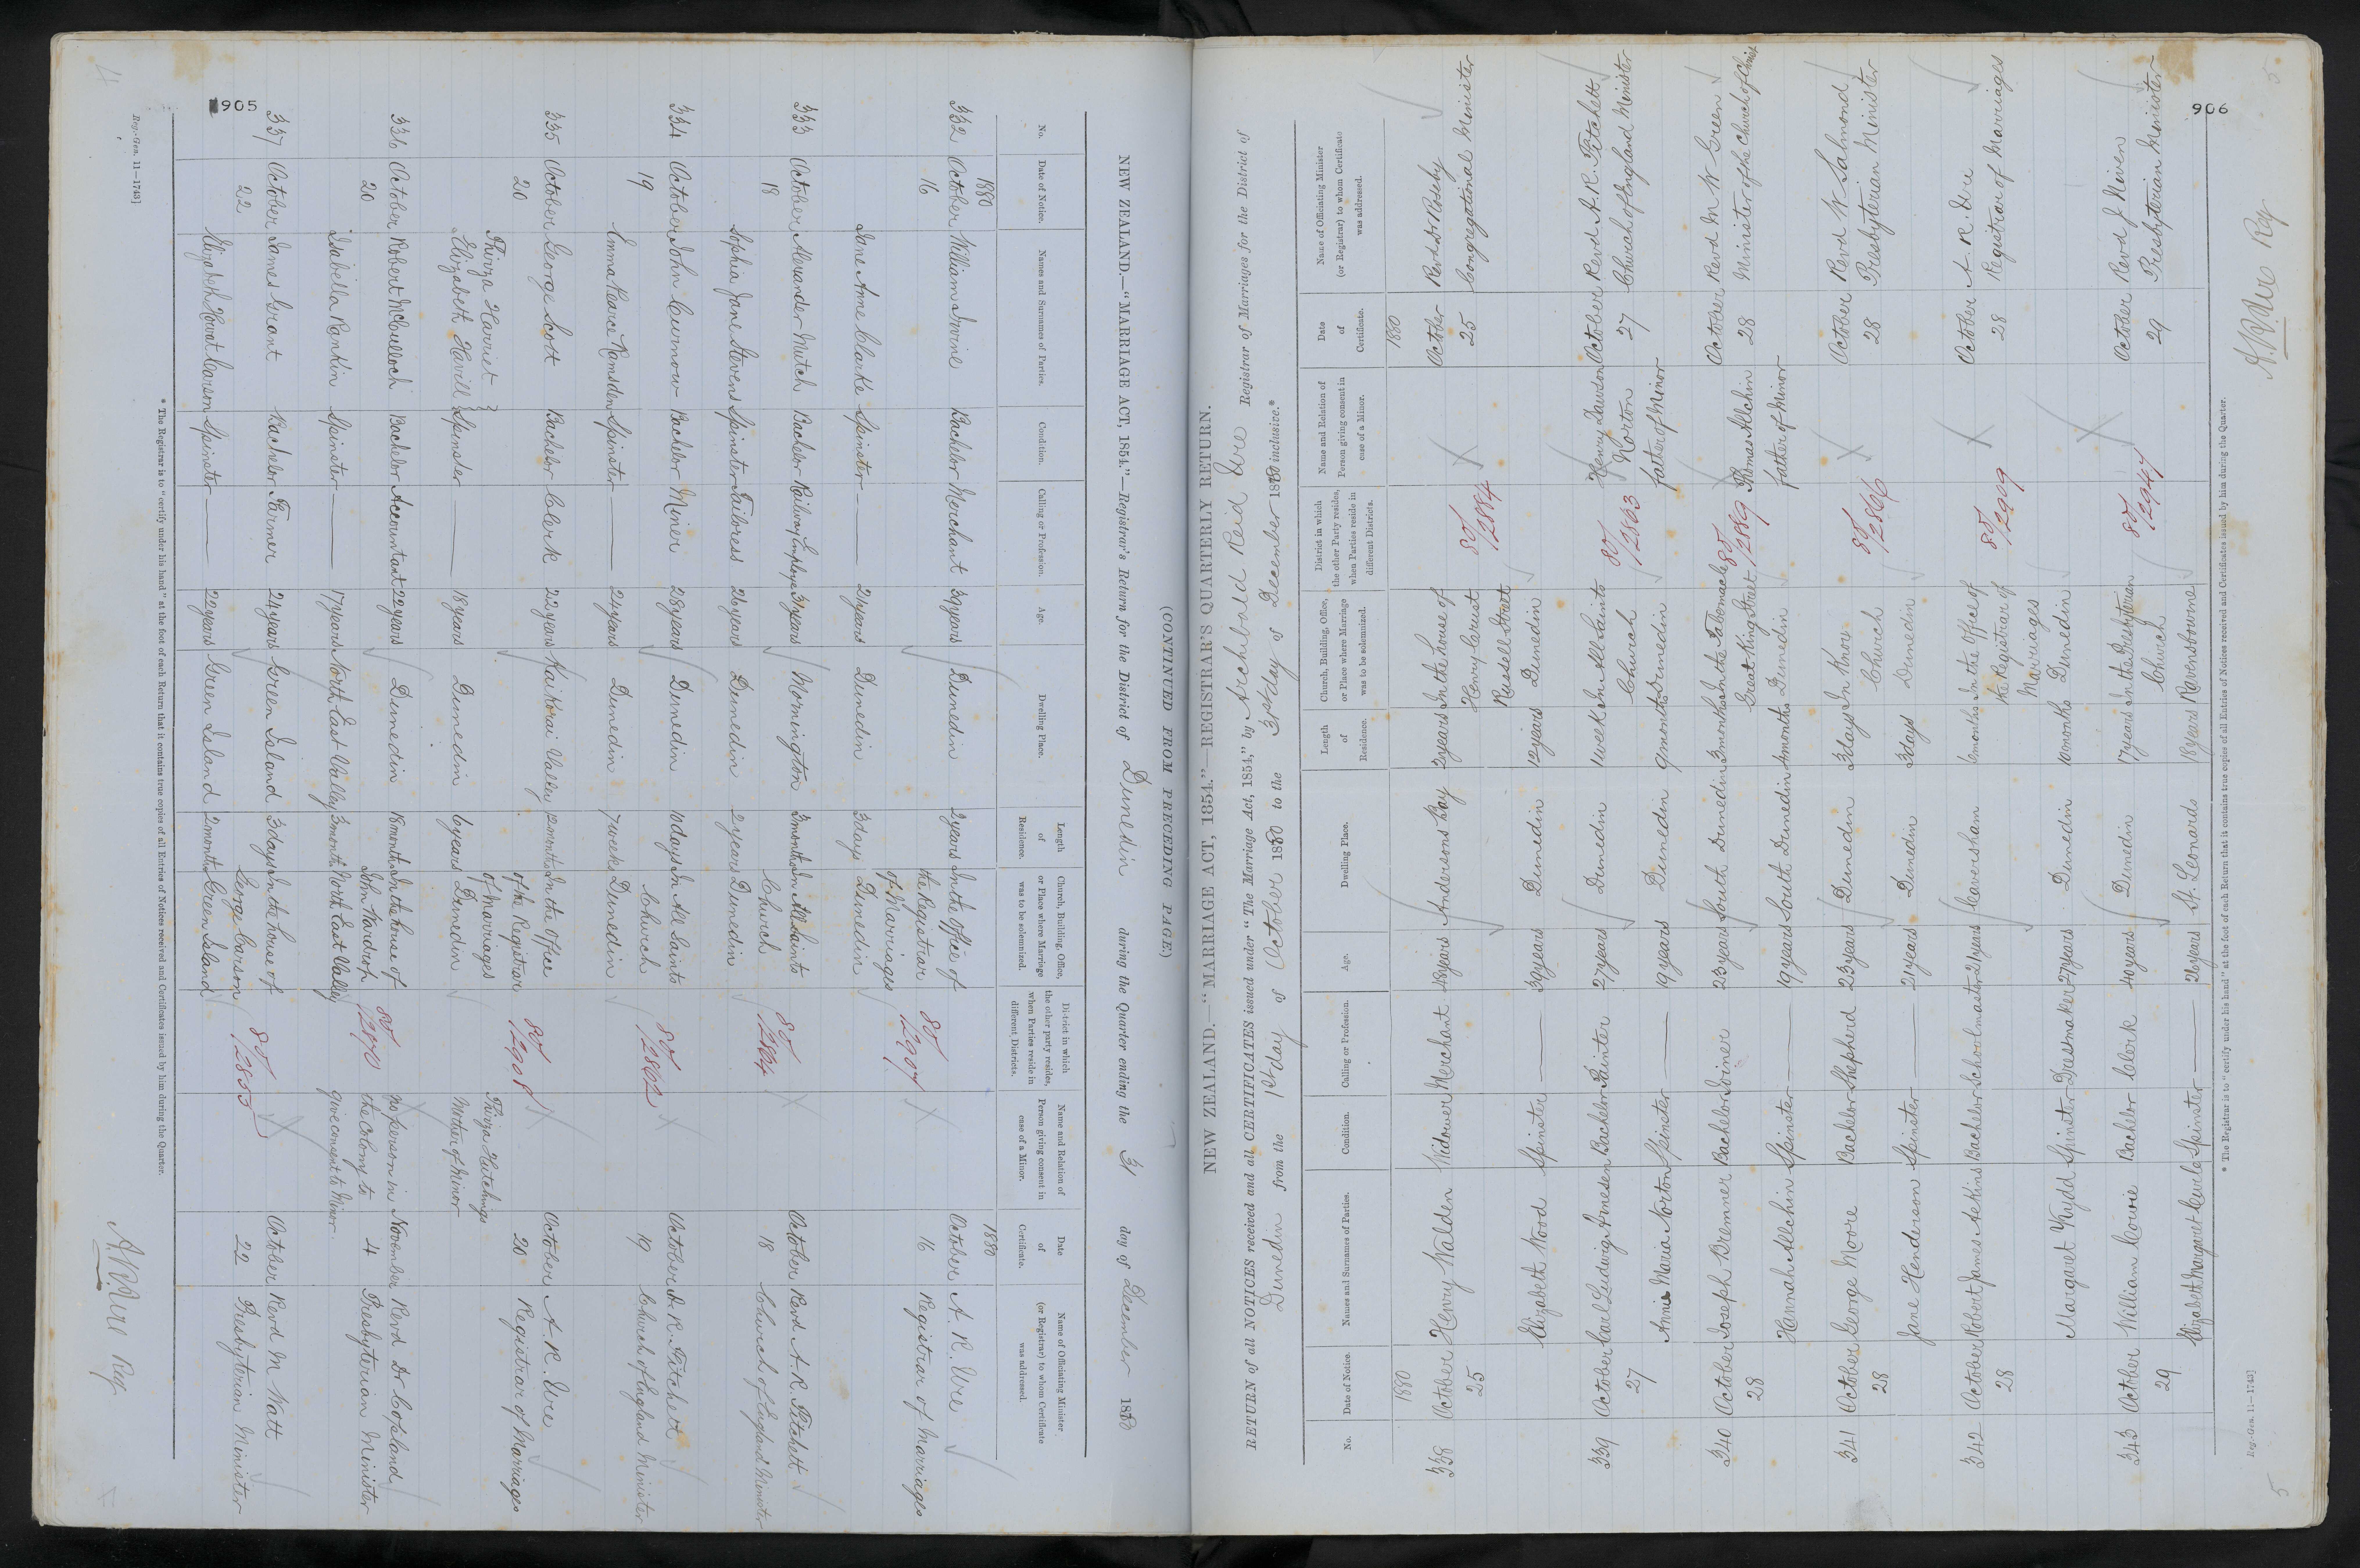 905
(CONTINUED FROM PRECEDING PAGE.)
NEW ZEALAND.—"MARRIAGE ACT, 1854."—Registrar's Return for the District of Dunedin during the Quarter ending the 31 day of December 1880
No. Date of Notice. Names and Surnames of Parties. Condition. Calling or Profession. Age. Dwelling Place. Length of Residence. Church, Building, Office, or Place where Marriage was to be solemnized. District in which the other party resides, when Parties reside in different Districts. Name and Relation of Person giving consent in case of a Minor. Date of Certificate. Name of Officiating Minister (or Registrar) to whom Certificate was addressed.
1880 1880
332 October William Irvine Bachelor Merchant 39 years Dunedin 2 years In the office of October A. R. Ure
16 the Registrar 80/2907 16 Registrar of Marriages
of Marriages
Jane Anne Clarke Spinster — 21 years Dunedin 3 days Dunedin
333 October Alexander Mutch Bachelor Railway Employe 31 years Mornington 3 months In All Saints October Revd A. R. Fitchett
18 Church 80/2864 18 Church of England Minister
Sophia Jane Stevens Spinster Tailoress 26 years Dunedin 2 years Dunedin
334 October John Curnow Bachelor Miner 28 years Dunedin 10 days In All Saints October A. R. Fitchett
19 Church 80/2862 19 Church of England Minister
Emma Pearce Ramsden Spinster — 24 years Dunedin 7 weeks Dunedin
335 October George Scott Bachelor Clerk 22 years Kaikorai Valley 12 months In the office October A. R. Ure
20 of the Registrar 80/2908 20 Registrar of Marriages
Thirza Harriet of Marriages Thirza Hutchings
Elizabeth Havill Spinster — 18 years Dunedin 6 years Dunedin Mother of Minor
336 October Robert McCulloch Bachelor Accountant 22 years Dunedin 18 months In the house of no person in November Revd Dr Copland
20 John Wardrop 80/2970 the Colony to 4 Presbyterian Minister
Isabella Rankin Spinster — 17 years North East Valley 3 months North East Valley give consent to Minor
337 October James Grant Bachelor Farmer 24 years Green Island 3 days In the house of October Revd M Watt
22 George Carson 80/2855 22 Presbyterian Minister
Elizabeth Howat Carson Spinster — 22 years Green Island 2 months Green Island
* The Registrar is to "certify under his hand" at the foot of each Return that it contains true copies of all Entries of Notices received and Certificates issued by him during the Quarter.
Reg.-Gen. 11—1743]
A. R. Ure Reg.
906
NEW ZEALAND.—"MARRIAGE ACT, 1854."—REGISTRAR'S QUARTERLY RETURN.
RETURN of all NOTICES received and all CERTIFICATES issued under "The Marriage Act, 1854," by Archibald Reid Ure Registrar of Marriages for the District of
Dunedin from the 1st day of October 1880 to the 31st day of December 1880 inclusive.*
No. Date of Notice. Names and Surnames of Parties. Condition. Calling or Profession. Age. Dwelling Place. Length of Residence. Church, Building, Office, or Place where Marriage was to be solemnized. District in which the other Party resides, when Parties reside in different Districts. Name and Relation of Person giving consent in case of a Minor. Date of Certificate. Name of Officiating Minister (or Registrar) to whom Certificate was addressed.
1880 1880
338 October Henry Walden Widower Merchant 48 years Andersons Bay 2 years In the house of October Revd Dr Roseby
25 Henry 80/2884 25 Congregational Minister
Russell Street
Elizabeth Wood Spinster — 39 years Dunedin 12 years Dunedin
339 October Carl Ludwig Arnesen Bachelor Painter 27 years Dunedin 1 week In All Saints Henry Dawson October Revd A. R. Fitchett
27 Church 80/2863 Norton 27 Church of England Minister
Annie Maria Norton Spinster — 19 years Dunedin 9 months Dunedin father of Minor
340 October Joseph Bremner Bachelor Joiner 23 years South Dunedin 3 months In the Tabernacle 80/2889 Thomas Allchin October Revd M W Green
28 Great King Street father of Minor 28 Minister of the Church of Christ
Hannah Allchin Spinster — 19 years South Dunedin 4 months Dunedin
341 October George Moore Bachelor Shepherd 23 years Dunedin 3 days In Knox October Revd W Salmond
28 Church 80/2866 28 Presbyterian Minister
Jane Henderson Spinster — 21 years Dunedin 3 days Dunedin
342 October Robert James Aekins Bachelor Schoolmaster 21 years Caversham 6 months In the Office of October A. R. Ure
28 the Registrar of 80/2909 28 Registrar of Marriages
Marriages
Margaret Kydd Spinster Dressmaker 27 years Dunedin 10 months Dunedin
343 October William Cowie Bachelor Clerk 40 years Dunedin 17 years In the Presbyterian October Revd J Niven
29 Church 80/2947 29 Presbyterian Minister
Elizabeth Margaret Curle Spinster — 26 years St. Leonards 18 years Ravensbourne
* The Registrar is to "certify under his hand" at the foot of each Return that it contains true copies of all Entries of Notices received and Certificates issued by him during the Quarter.
Reg.-Gen. 11—1743]
A. R. Ure Reg.
5